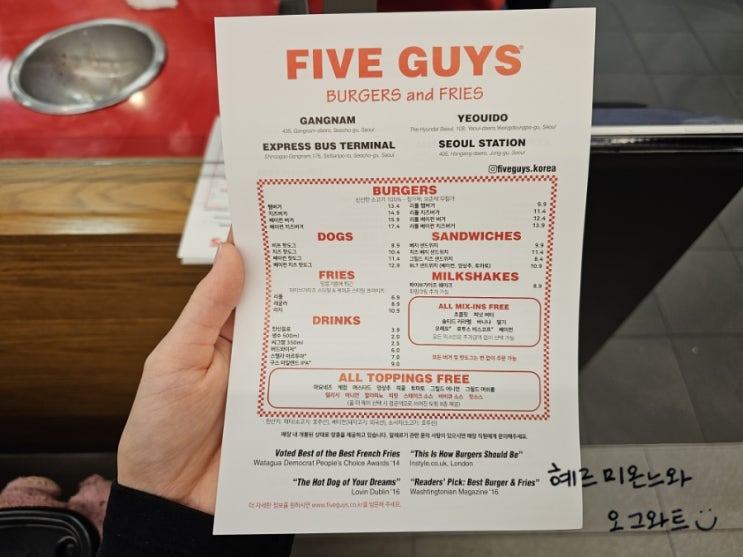 FIVE GUYS®
BURGERS and FRIES
GANGNAM
435, Gangnam-daero, Seocho-gu, Seoul
YEOUIDO
The Hyundai Seoul, 108, Yeoui-daero, Yeongdeungpo-gu, Seoul
EXPRESS BUS TERMINAL
Shinsegae Gangnam, 176, Sinbanpo-ro, Seocho-gu, Seoul
SEOUL STATION
405, Hangang-daero, Jung-gu, Seoul
fiveguys.korea
BURGERS
햄버거 13.4
치즈버거 14.9
베이컨 버거 15.9
베이컨 치즈버거 17.4
리틀 햄버거 9.9
리틀 치즈버거 11.4
리틀 베이컨 버거 12.4
리틀 베이컨 치즈버거 13.9
DOGS
비프 핫도그 8.9
치즈 핫도그 10.4
베이컨 핫도그 11.4
베이컨 치즈 핫도그 12.9
SANDWICHES
베지 샌드위치 9.9
치즈 베지 샌드위치 11.4
그릴드 치즈 샌드위치 8.4
BLT 샌드위치 (베이컨, 양상추, 토마토) 10.9
FRIES
리틀 6.9
레귤러 8.9
라지 10.9
MILKSHAKES
파이브가이즈 쉐이크 8.9
휘핑크림 추가 가능
ALL MIX-INS FREE
초콜릿 피넛 버터
솔티드 카라멜 바나나 딸기
오레오® 로투스 비스코프® 베이컨
모든 믹스인은 추가금액 없이 선택 가능
DRINKS
탄산음료 3.9
생수 500ml 2.0
씨그램 350ml 2.5
버드와이저® 6.0
스텔라 아르투아® 7.0
구스 아일랜드 IPA® 9.0
모든 버거 및 핫도그는 번 없이 주문 가능
ALL TOPPINGS FREE
마요네즈 케첩 머스타드 양상추 피클 토마토 그릴드 어니언 그릴드 머쉬룸
렐리시 어니언 할라피뇨 피망 스테이크 소스 바비큐 소스 핫소스
매장 내 개봉된 상태로 땅콩을 제공하고 있습니다. 알레르기 관련 문의 사항이 있으시면 매장 직원에게 문의해주세요.
Voted Best of the Best French Fries
Watagua Democrat People's Choice Awards '14
"This is How Burgers Should Be"
Instyle.co.uk, London
"The Hot Dog of Your Dreams"
Lovin Dublin '16
"Readers' Pick: Best Burger & Fries"
Washtingtonian Magazine '16
더 자세한 정보를 원하시면 www.fiveguys.co.kr을 방문해 주세요.
혜르미온느와
오그와트